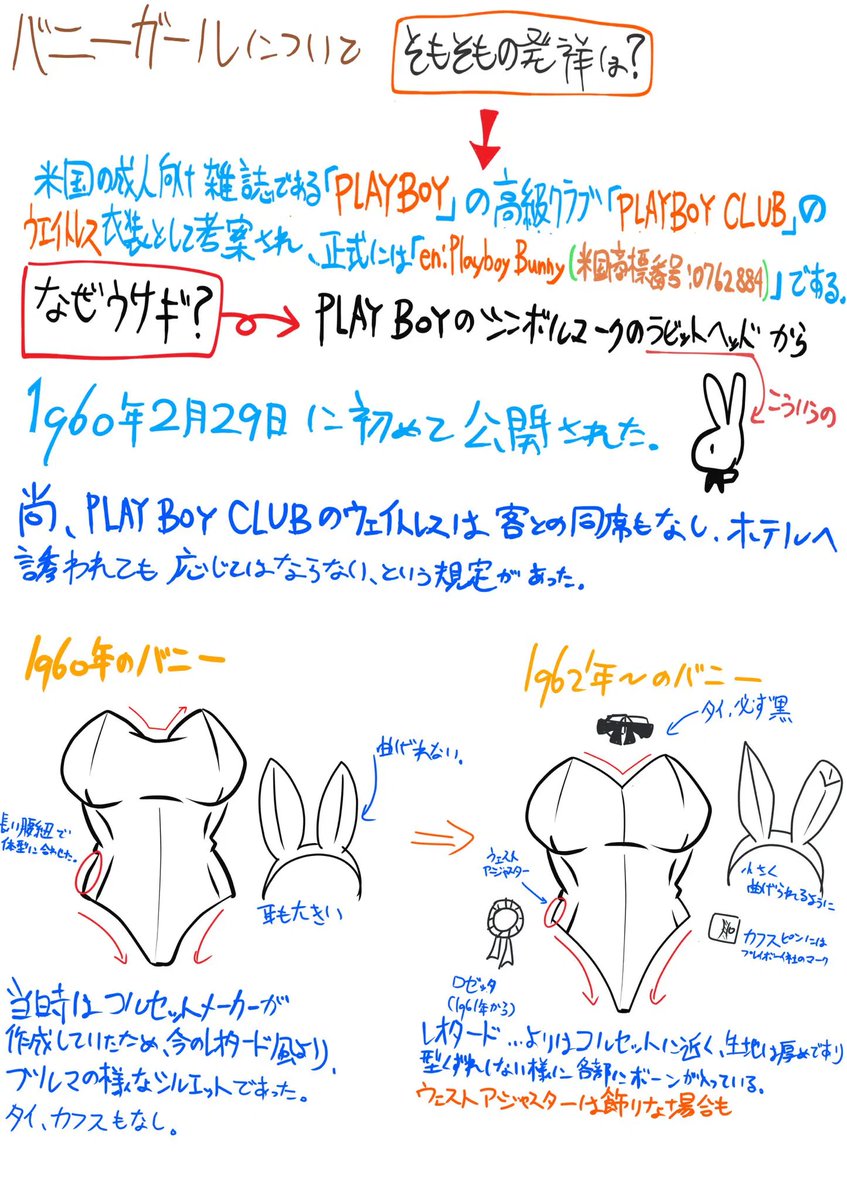 バニーガールについて
そもそもの発祥は?
米国の成人向け雑誌である「PLAYBOY」の高級クラブ「PLAYBOY CLUB」の
ウエイトレス衣装として考案され、正式には「en:Playboy Bunny(米国商標番号:0762884)」である。
なぜウサギ?
PLAY BOYのシンボルマークのラビットヘッドから
こういうの
1960年2月29日に初めて公開された。
尚、PLAY BOY CLUBのウェイトレスは客との同席もなし、ホテルへ
誘われても応じてはならない、という規定があった。
1960年のバニー
曲げれない。
長い腰紐で
体型に合わせた。
耳も大きい
当時はコルセットメーカーが
作成していたため、今のレオタード風より、
ブルマの様なシルエットであった。
タイ、カフスもなし。
1962年〜のバニー
タイ、必ず黒
ウェスト
アジャスター
小さく
曲げられるように
カフスピンには
プレイボーイ社のマーク
ロゼッタ
(1961年から)
レオタード…よりはコルセットに近く、生地は厚めであり
型くずれしない様に各部にボーンが入っている。
ウェストアジャスターは飾りな場合も